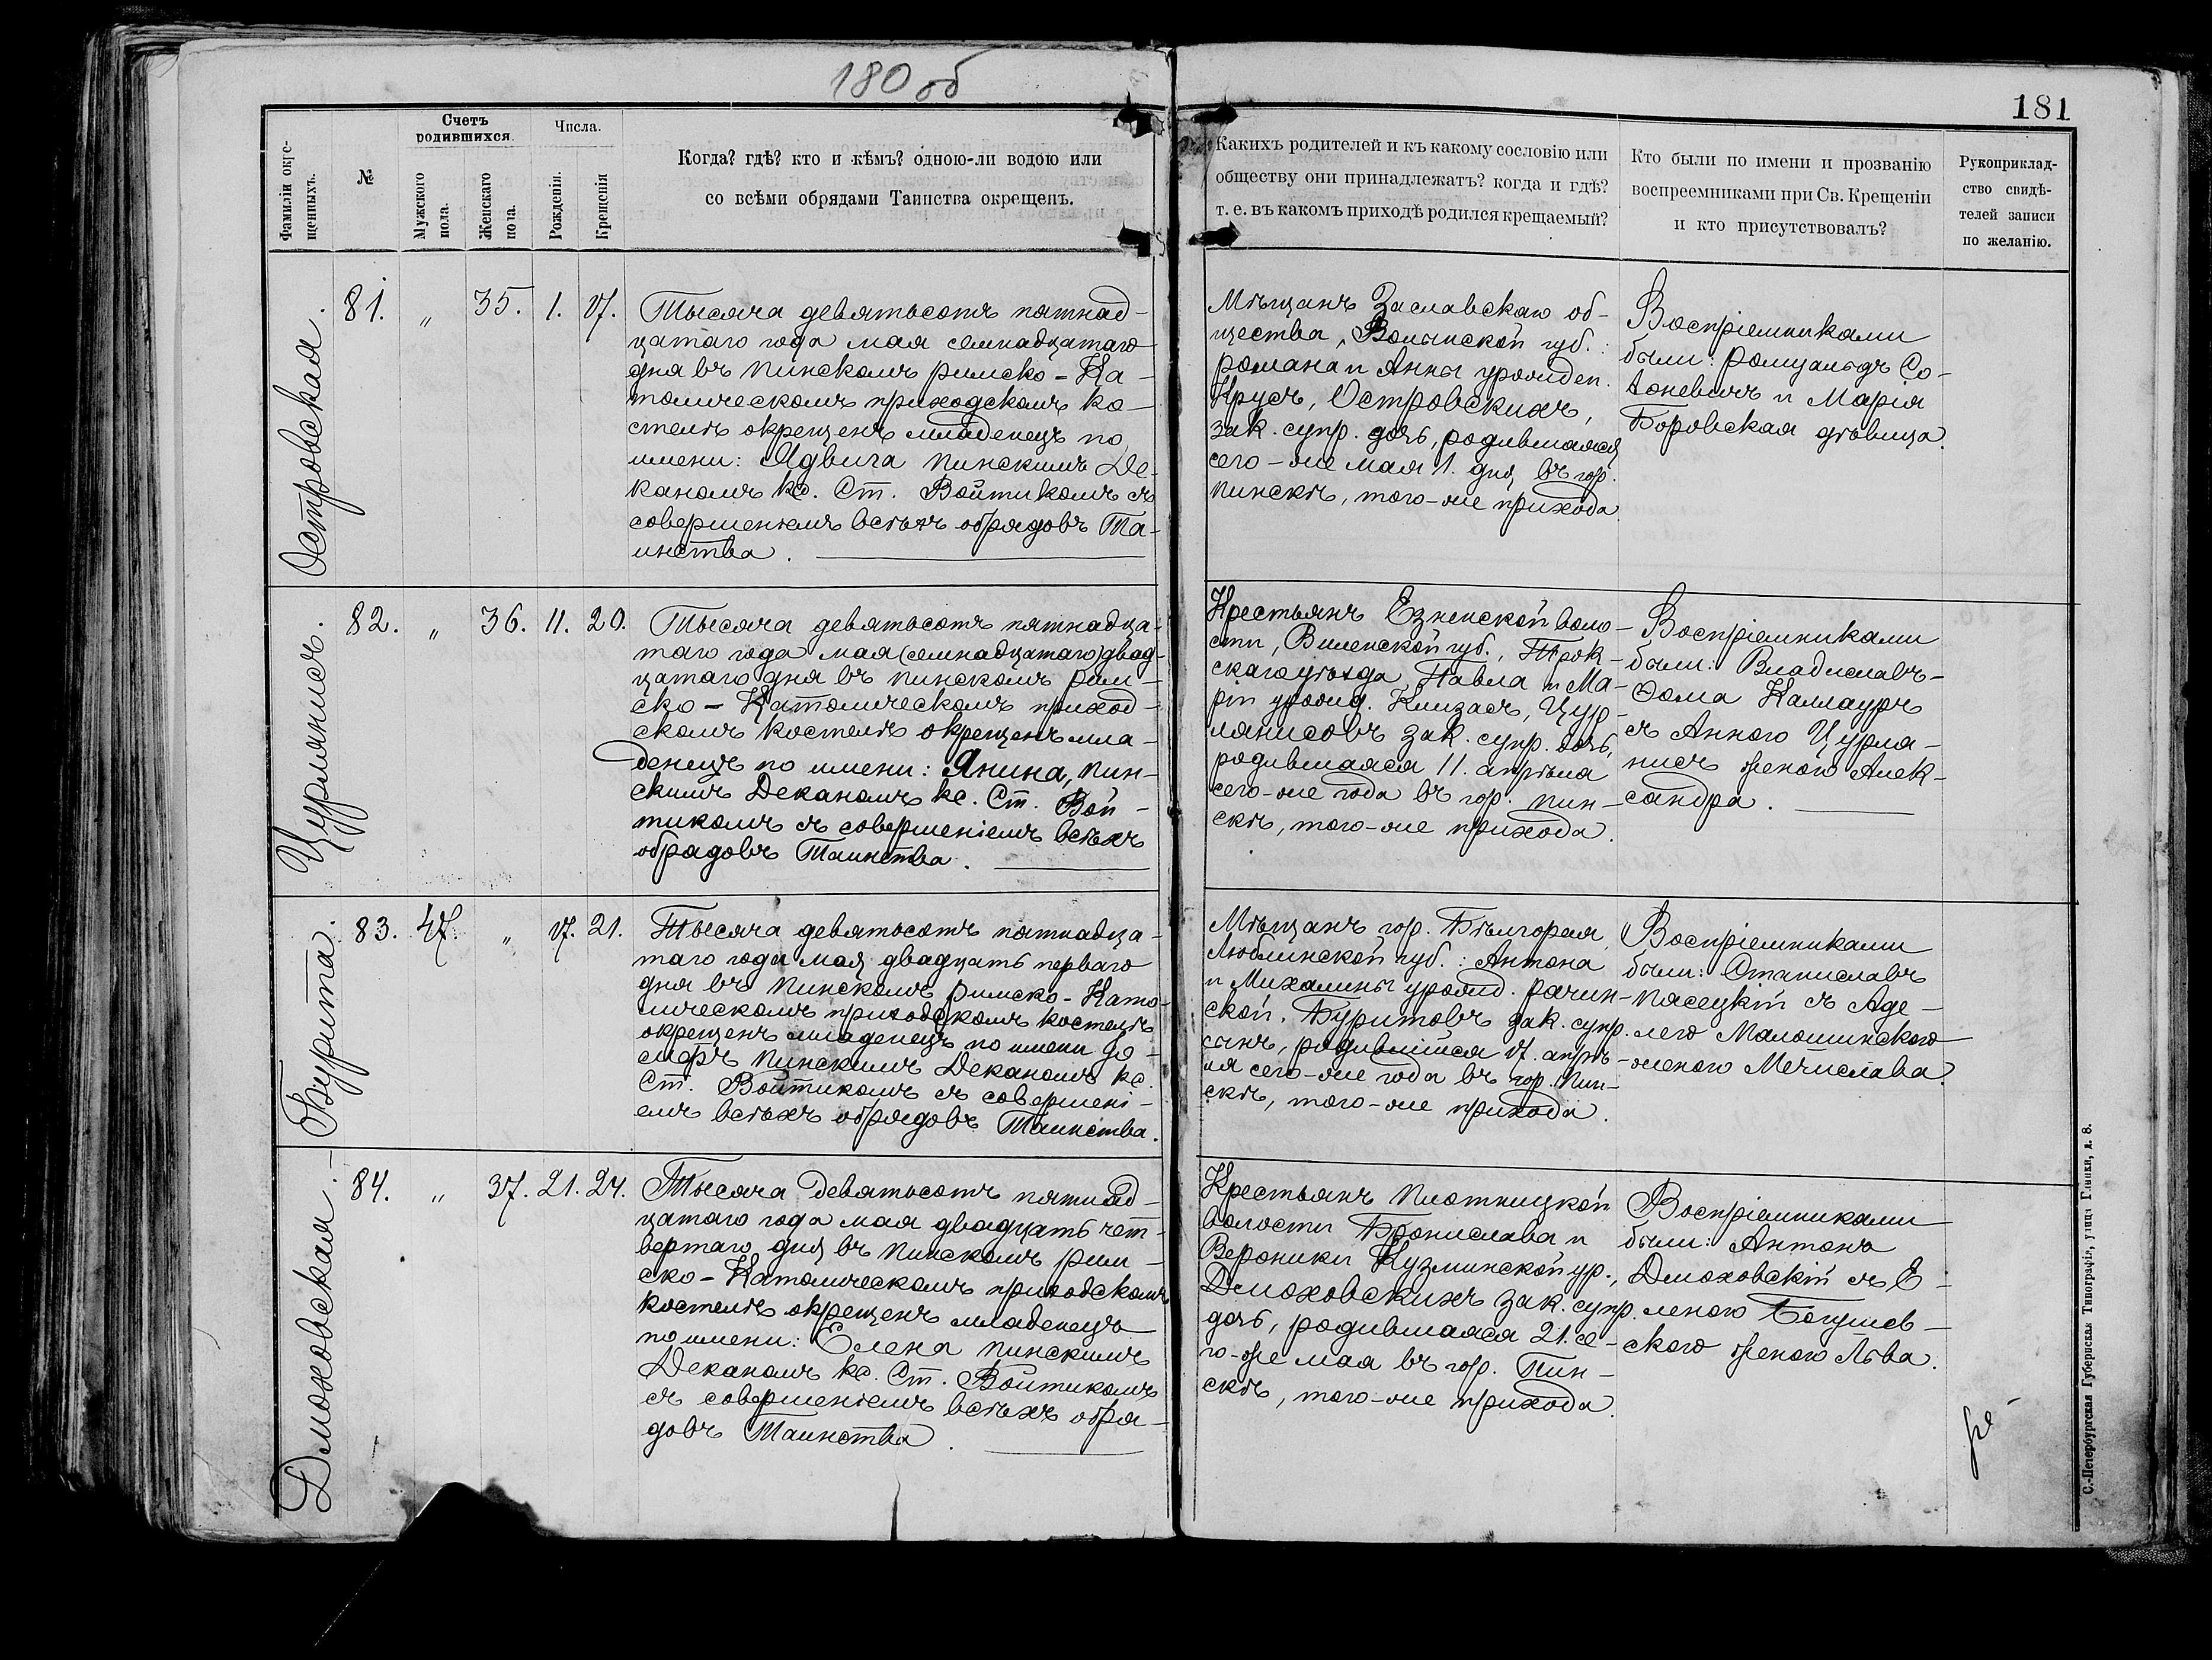 180 об
181
Фамиліи окре-
щенныхъ.
№
Счетъ
родившихся.
Мужскаго
пола.
Женскаго
пола.
Числа.
Рожденія.
Крещенія
Когда? гдѣ? кто и кѣмъ? одною-ли водою или
со всѣми обрядами Таинства окрещенъ.
Какихъ родителей и къ какому сословію или
обществу они принадлежатъ? когда и гдѣ?
т. е. въ какомъ приходѣ родился крещаемый?
Кто были по имени и прозванію
воспреемниками при Св. Крещеніи
и кто присутствовалъ?
Рукоприклад-
ство свидѣ-
телей записи
по желанію.
Островская.
81. " 35. 1. 17.
Тысяча девятьсотъ пятнад-
цатаго года мая семнадцатаго
дня въ Пинскомъ римско-Ка-
толическомъ приходскомъ ко-
стелѣ окрещенъ младенецъ по
имени: Ядвига Пинскимъ Де-
каномъ кс. Ст. Войтикомъ съ
совершеніемъ всѣхъ обрядовъ Та-
инства.
Мѣщанъ Заславскаго об-
щества, Волынской губ.:
Романа и Анны урожден.
Крусъ, Островскихъ,
зак. супр. дочь, родившаяся
сего-же мая 1. дня, въ гор.
Пинскѣ, того-же прихода.
Воспріемниками
были: Ромуальдъ Со-
лоневичъ и Марія
Боровская дѣвица.
Цурлянисъ.
82. " 36. 11. 20.
Тысяча девятьсотъ пятнадца-
таго года мая (семнадцатаго) двад-
цатаго дня въ Пинскомъ рим-
ско-Католическомъ приход-
скомъ костелѣ окрещенъ мла-
денецъ по имени: Янина, Пин-
скимъ Деканомъ кс. Ст. Вой-
тикомъ съ совершеніемъ всѣхъ
обрядовъ Таинства.
Крестьянъ Езненской воло-
сти, Виленской губ., Трок-
скаго уѣзда, Павла и Ма-
ріи урожд. Клизасъ, Цур-
лянисовъ зак. супр. дочь,
родившаяся 11. апрѣля
сего-же года въ гор. Пин-
скѣ, того-же прихода.
Воспріемниками
были: Владиславъ-
Ѳома Каллауръ
съ Анною Цурля-
нисъ женою Алек-
сандра.
Бурита.
83. 47. " 17. 21.
Тысяча девятьсотъ пятнадца-
таго года мая двадцать перваго
дня въ Пинскомъ римско-Като-
лическомъ приходскомъ костелѣ
окрещенъ младенецъ по имени Іо-
сифъ Пинскимъ Деканомъ кс.
Ст. Войтикомъ съ совершені-
емъ всѣхъ обрядовъ Таинства.
Мѣщанъ гор. Бѣлгорая,
Люблинской губ.: Антона
и Михалины урожд. Рачин-
ской, Буритовъ зак. супр.
сынъ, родившійся 17. апрѣ-
ля сего-же года въ гор. Пин-
скѣ, того-же прихода.
Воспріемниками
были: Станиславъ
Пясецкій съ Аде-
лею Малошинскою
женою Мечислава.
Дмоховская.
84. " 37. 21. 24.
Тысяча девятьсотъ пятнад-
цатаго года мая двадцать чет-
вертаго дня въ Пинскомъ рим-
ско-Католическомъ приходскомъ
костелѣ окрещенъ младенецъ
по имени: Елена Пинскимъ
Деканомъ кс. Ст. Войтикомъ
съ совершеніемъ всѣхъ обря-
довъ Таинства.
Крестьянъ Плотницкой
волости Бронислава и
Вероники Кузминской ур.,
Дмоховскихъ зак. супр.
дочь, родившаяся 21. се-
го-же мая въ гор. Пин-
скѣ, того-же прихода.
Воспріемниками
были: Антонъ
Дмоховскій съ Е-
леною Богушев-
скою женою Льва.
С.-Петербургская Губернская Типографія, улица Глинки, д. 8.